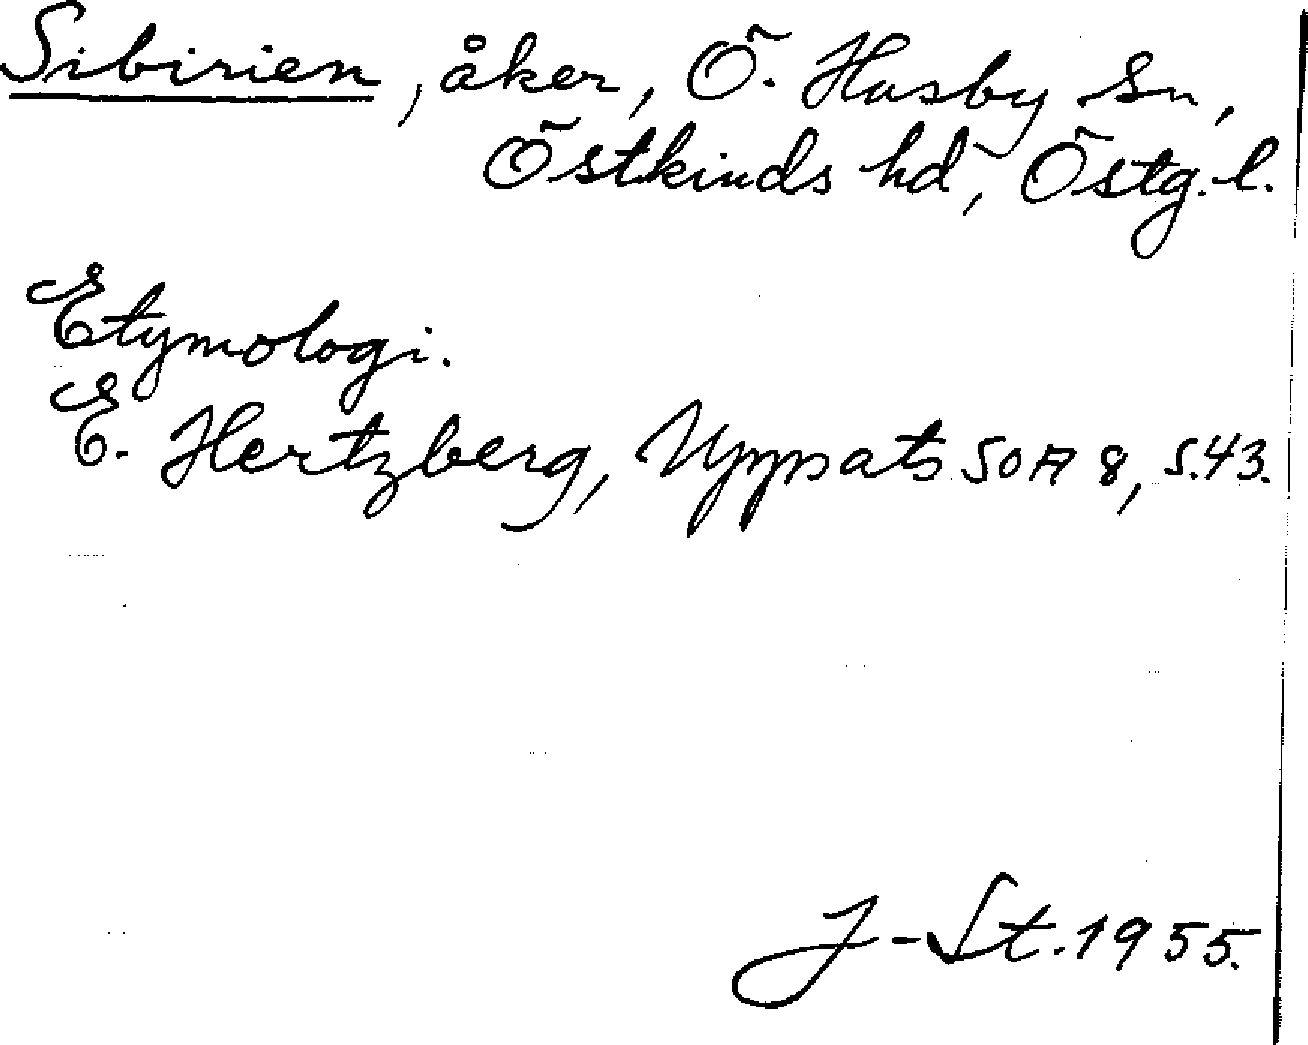 Sibirien, åker, Ö. Husby sn,
Östkinds hd, Östg. l.
Etymologi.
E. Hertzberg, Uppsats SOA 8, s.43.
J-St. 1955.